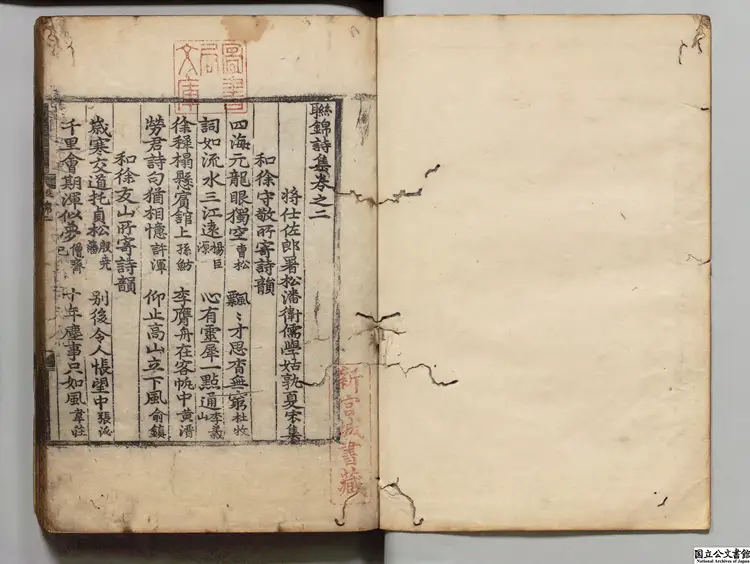 聯錦詩集卷之二
將仕佐郎署松潘衛儒學姑孰夏宏集
和徐守敬所寄詩韻
四海元龍眼獨空 曹松 飄〻才思杳無窮 杜牧
詞如流水三江遠 楊巨源 心有靈犀一點通 李義山
徐穉榻懸賓舘上 孫魴 李膺舟在客帆中 黃滔
勞君詩句猶相憶 許渾 仰止高山立下風 俞鎮
和徐友山所寄詩韻
歲寒交道托貞松 殷堯藩 别後令人悵望中 張泌
千里會期渾似夢 僧齊己 十年塵事只如風 韋莊
圖書
局
文庫
新宮城書藏
国立公文書館
National Archives of Japan